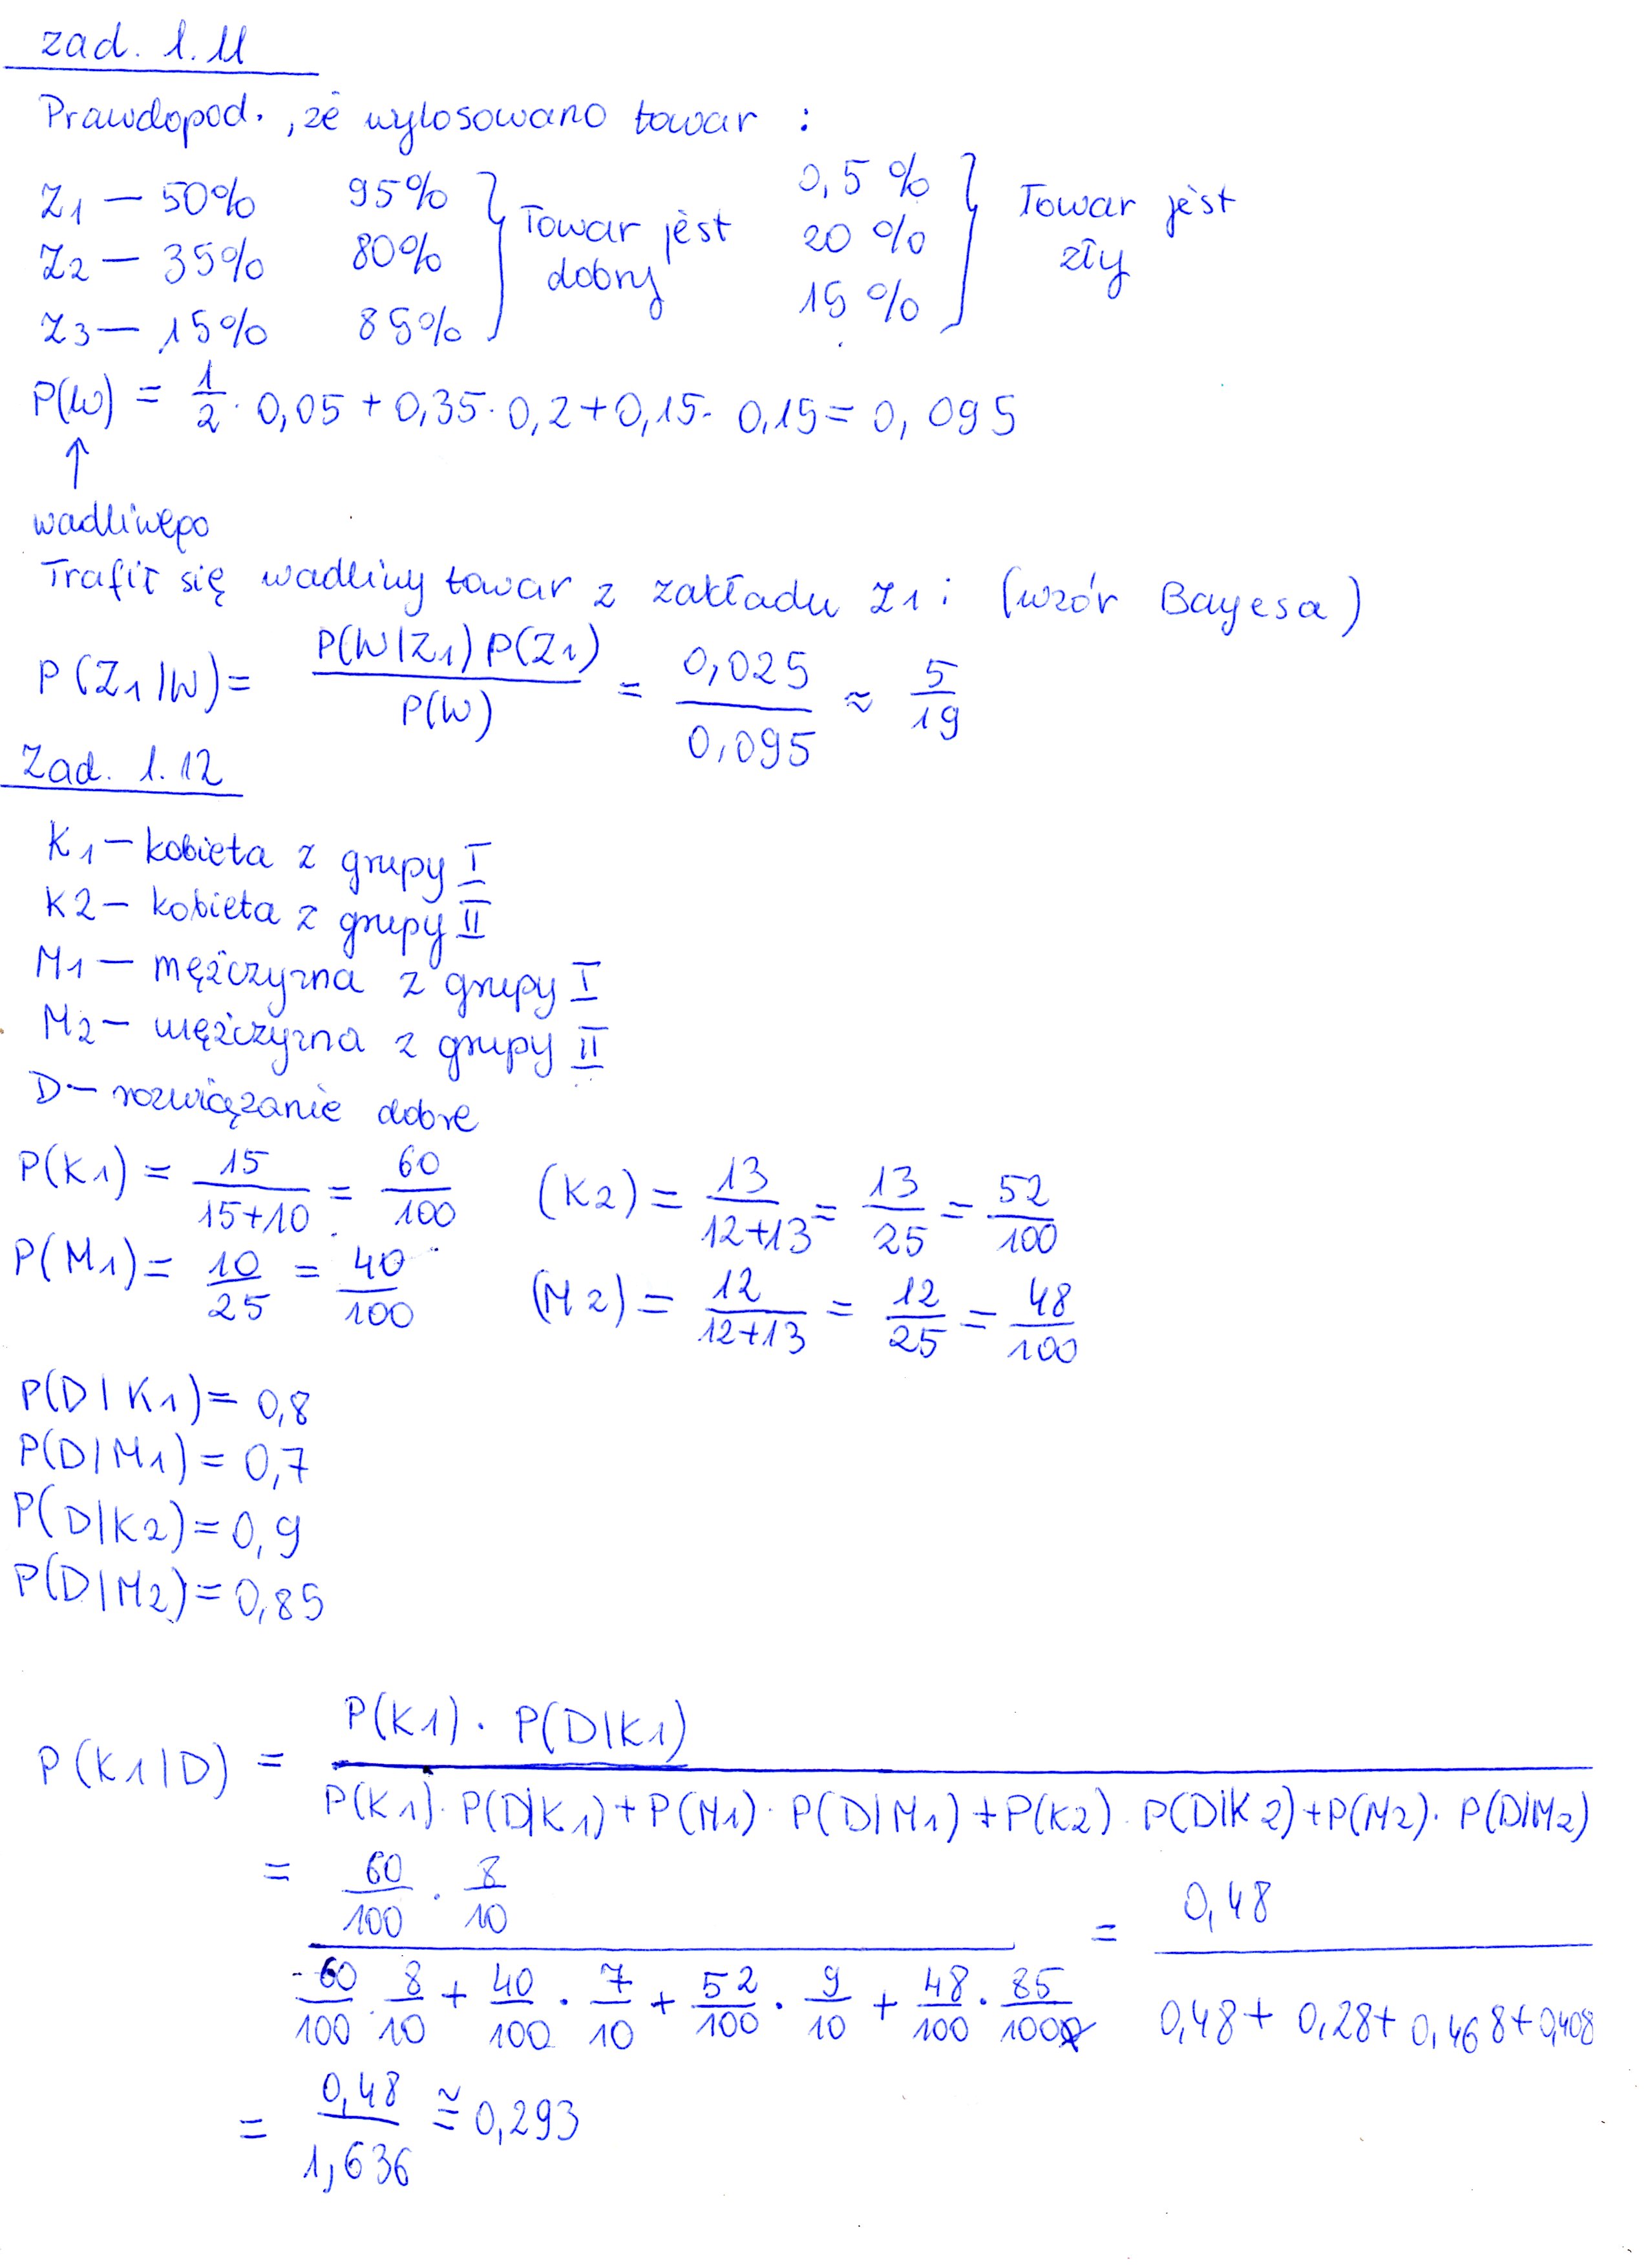 zad. 1.11
Prawdopod., że wylosowano towar :
Z1 — 50% 95% } Towar jest dobry 0,5 % } Towar jest zły
Z2 — 35% 80% 20 %
Z3 — 15% 85% 15 %
P(W) = 1/2 · 0,05 + 0,35 · 0,2 + 0,15 · 0,15 = 0,095
↑
wadliwego
Trafił się wadliwy towar z zakładu Z1 : (wzór Bayesa)
P(Z1|W) = P(W|Z1) P(Z1) / P(W) = 0,025 / 0,095 ≈ 5/19
Zad. 1.12
K1 — kobieta z grupy I
K2 — kobieta z grupy II
M1 — mężczyzna z grupy I
M2 — mężczyzna z grupy II
D — rozwiązanie dobre
P(K1) = 15/(15+10) = 60/100 (K2) = 13/(12+13) = 13/25 = 52/100
P(M1) = 10/25 = 40/100 (M2) = 12/(12+13) = 12/25 = 48/100
P(D|K1) = 0,8
P(D|M1) = 0,7
P(D|K2) = 0,9
P(D|M2) = 0,85
P(K1|D) = P(K1) · P(D|K1) / P(K1) · P(D|K1) + P(M1) · P(D|M1) + P(K2) · P(D|K2) + P(M2) · P(D|M2)
= 60/100 · 8/10 / 60/100 · 8/10 + 40/100 · 7/10 + 52/100 · 9/10 + 48/100 · 85/100 = 0,48 / 0,48 + 0,28 + 0,468 + 0,408
= 0,48 / 1,636 ≅ 0,293